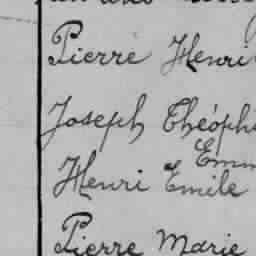 Pierre Henri
Joseph Théoph
Em
Henri Emile
Pierre Marie